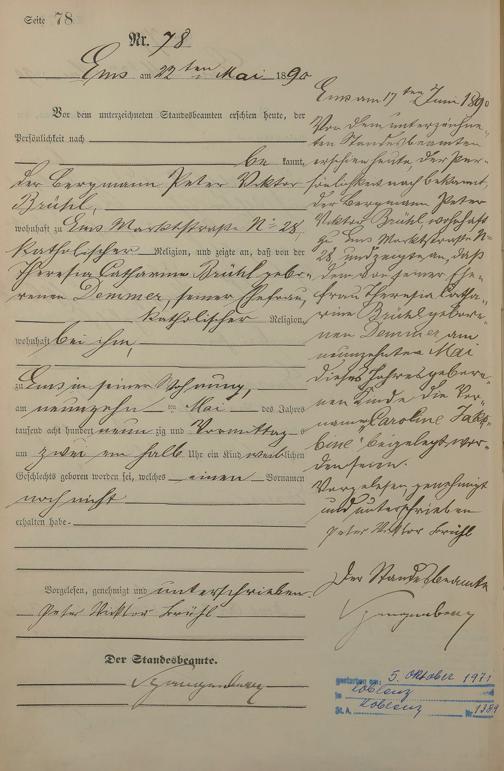 Seite 78
Nr. 78
Ems am 22ten Mai 1890
Vor dem unterzeichneten Standesbeamten erschien heute, der
Persönlichkeit nach
be kannt,
der Bergmann Peter Viktor
Brühl,
wohnhaft zu Ems Marktstraße No 28,
katholischer Religion, und zeigte an, daß von der
Theresia Catharina Brühl gebo-
renen Demmer, seiner Ehefrau,
katholischer Religion,
wohnhaft bei ihm,
zu Ems in seiner Wohnung,
am neunzehn ten Mai des Jahres
tausend acht hundert neun zig und Vormittag s
um zwei ein halb Uhr ein Kind weiblichen
Geschlechts geboren worden sei, welches einen Vornamen
noch nicht
erhalten habe.
Vorgelesen, genehmigt und unterschrieben.
Peter Viktor Brühl
Der Standesbeamte.
Ems am 17ten Juni 1890
Vor dem unterzeichne-
ten Standesbeamten
erschien heute, der Per-
sönlichkeit nach bekannt,
der Bergmann Peter
Viktor Brühl, wohnhaft
zu Ems Marktstraße No
28, und zeigte an, daß
dem von seiner Ehe-
frau Theresia Catha-
rina Brühl gebore-
nen Demmer am
neunzehnten Mai
dieses Jahres gebore-
nen Kinde die Vor-
namen "Caroline Jako-
bine" beigelegt wor-
den seien.
Vorgelesen, genehmigt
und unterschrieben
Peter Viktor Brühl
Der Standesbeamte
gestorben am: 5. Oktober 1971
in Koblenz
St. A. Koblenz Nr. 1389